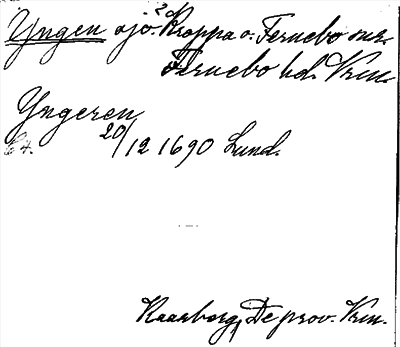 Yngen sjö. Kroppa o. Fernebo snr.
Fernebo hd. Vrm.
Yngeren
64. 20/12 1690 Lund.
Kaarborg, De prov. Vrm.